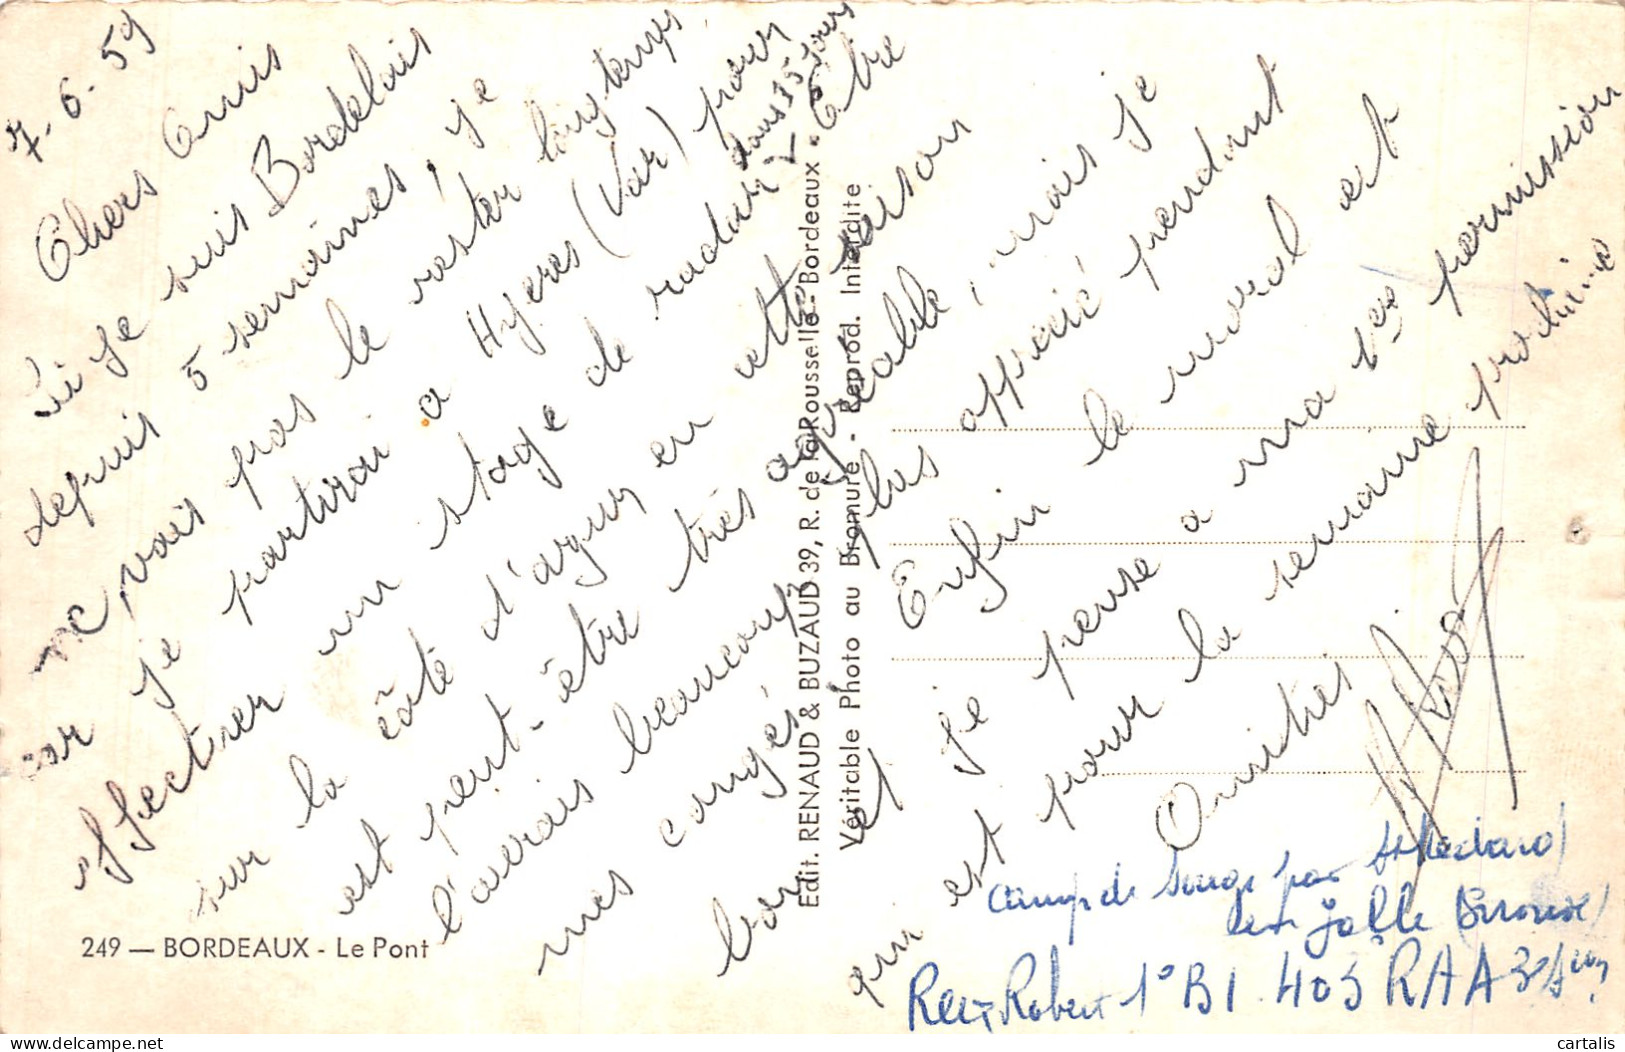 7-6-59
Chers Amis
Si je suis Bordelais
depuis 5 semaines, je
ne vais pas le rester longtemps
car je partirai a Hyères (Var) pour
effectuer un stage de radar
dans 15 jours
sur la côte d'azur en cette saison
est peut-être très agréable, mais je
l'aurais beaucoup plus apprecié pendant
mes congés.
Enfin le moral est
bon et je pense a ma 1ere permission
qui est pour la semaine prochaine
Amitiés
camp de Souge par St Medard
en Jalle (Gironde)
Robert 1° B1 403 RAA
249 — BORDEAUX - Le Pont
Edit. RENAUD & BUZAUD 39, R. de la Rousselle - Bordeaux
Véritable Photo au Bromure - Reprod. Interdite
cartalis